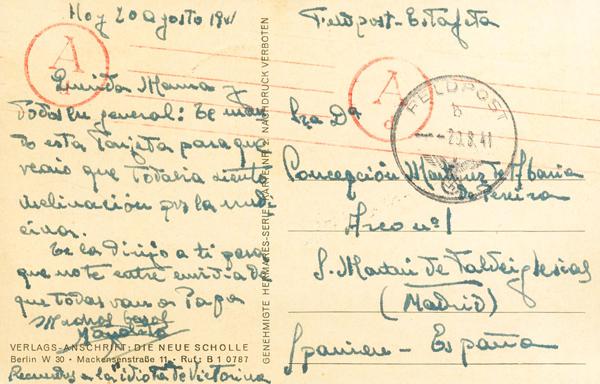 Hoy 20 agosto 1941
Querida Mama y
Todos en general: Te man
do esta Tarjeta para que
veais que todavia siento
inclinación por la medi
cina.
Te la dirijo a ti para
que no te entre envidia de
que todas van a Papa
Muchos besos
Recuerdos a la idiota de Victorina
VERLAGS-ANSCHRIFT: DIE NEUE SCHOLLE
Berlin W 30 • Mackensenstraße 11 • Ruf: B 1 0787
GENEHMIGTE HERMARES-SERIE KARTE NR. 2. NACHDRUCK VERBOTEN
A
Feldpost-Estafeta
A
d
FELDPOST
b
20.8.41
Sra Dª
Concepción Martinez de
de Pereira
Arco nº 1
S. Martin de Valdeiglesias
(Madrid)
Spanien - España